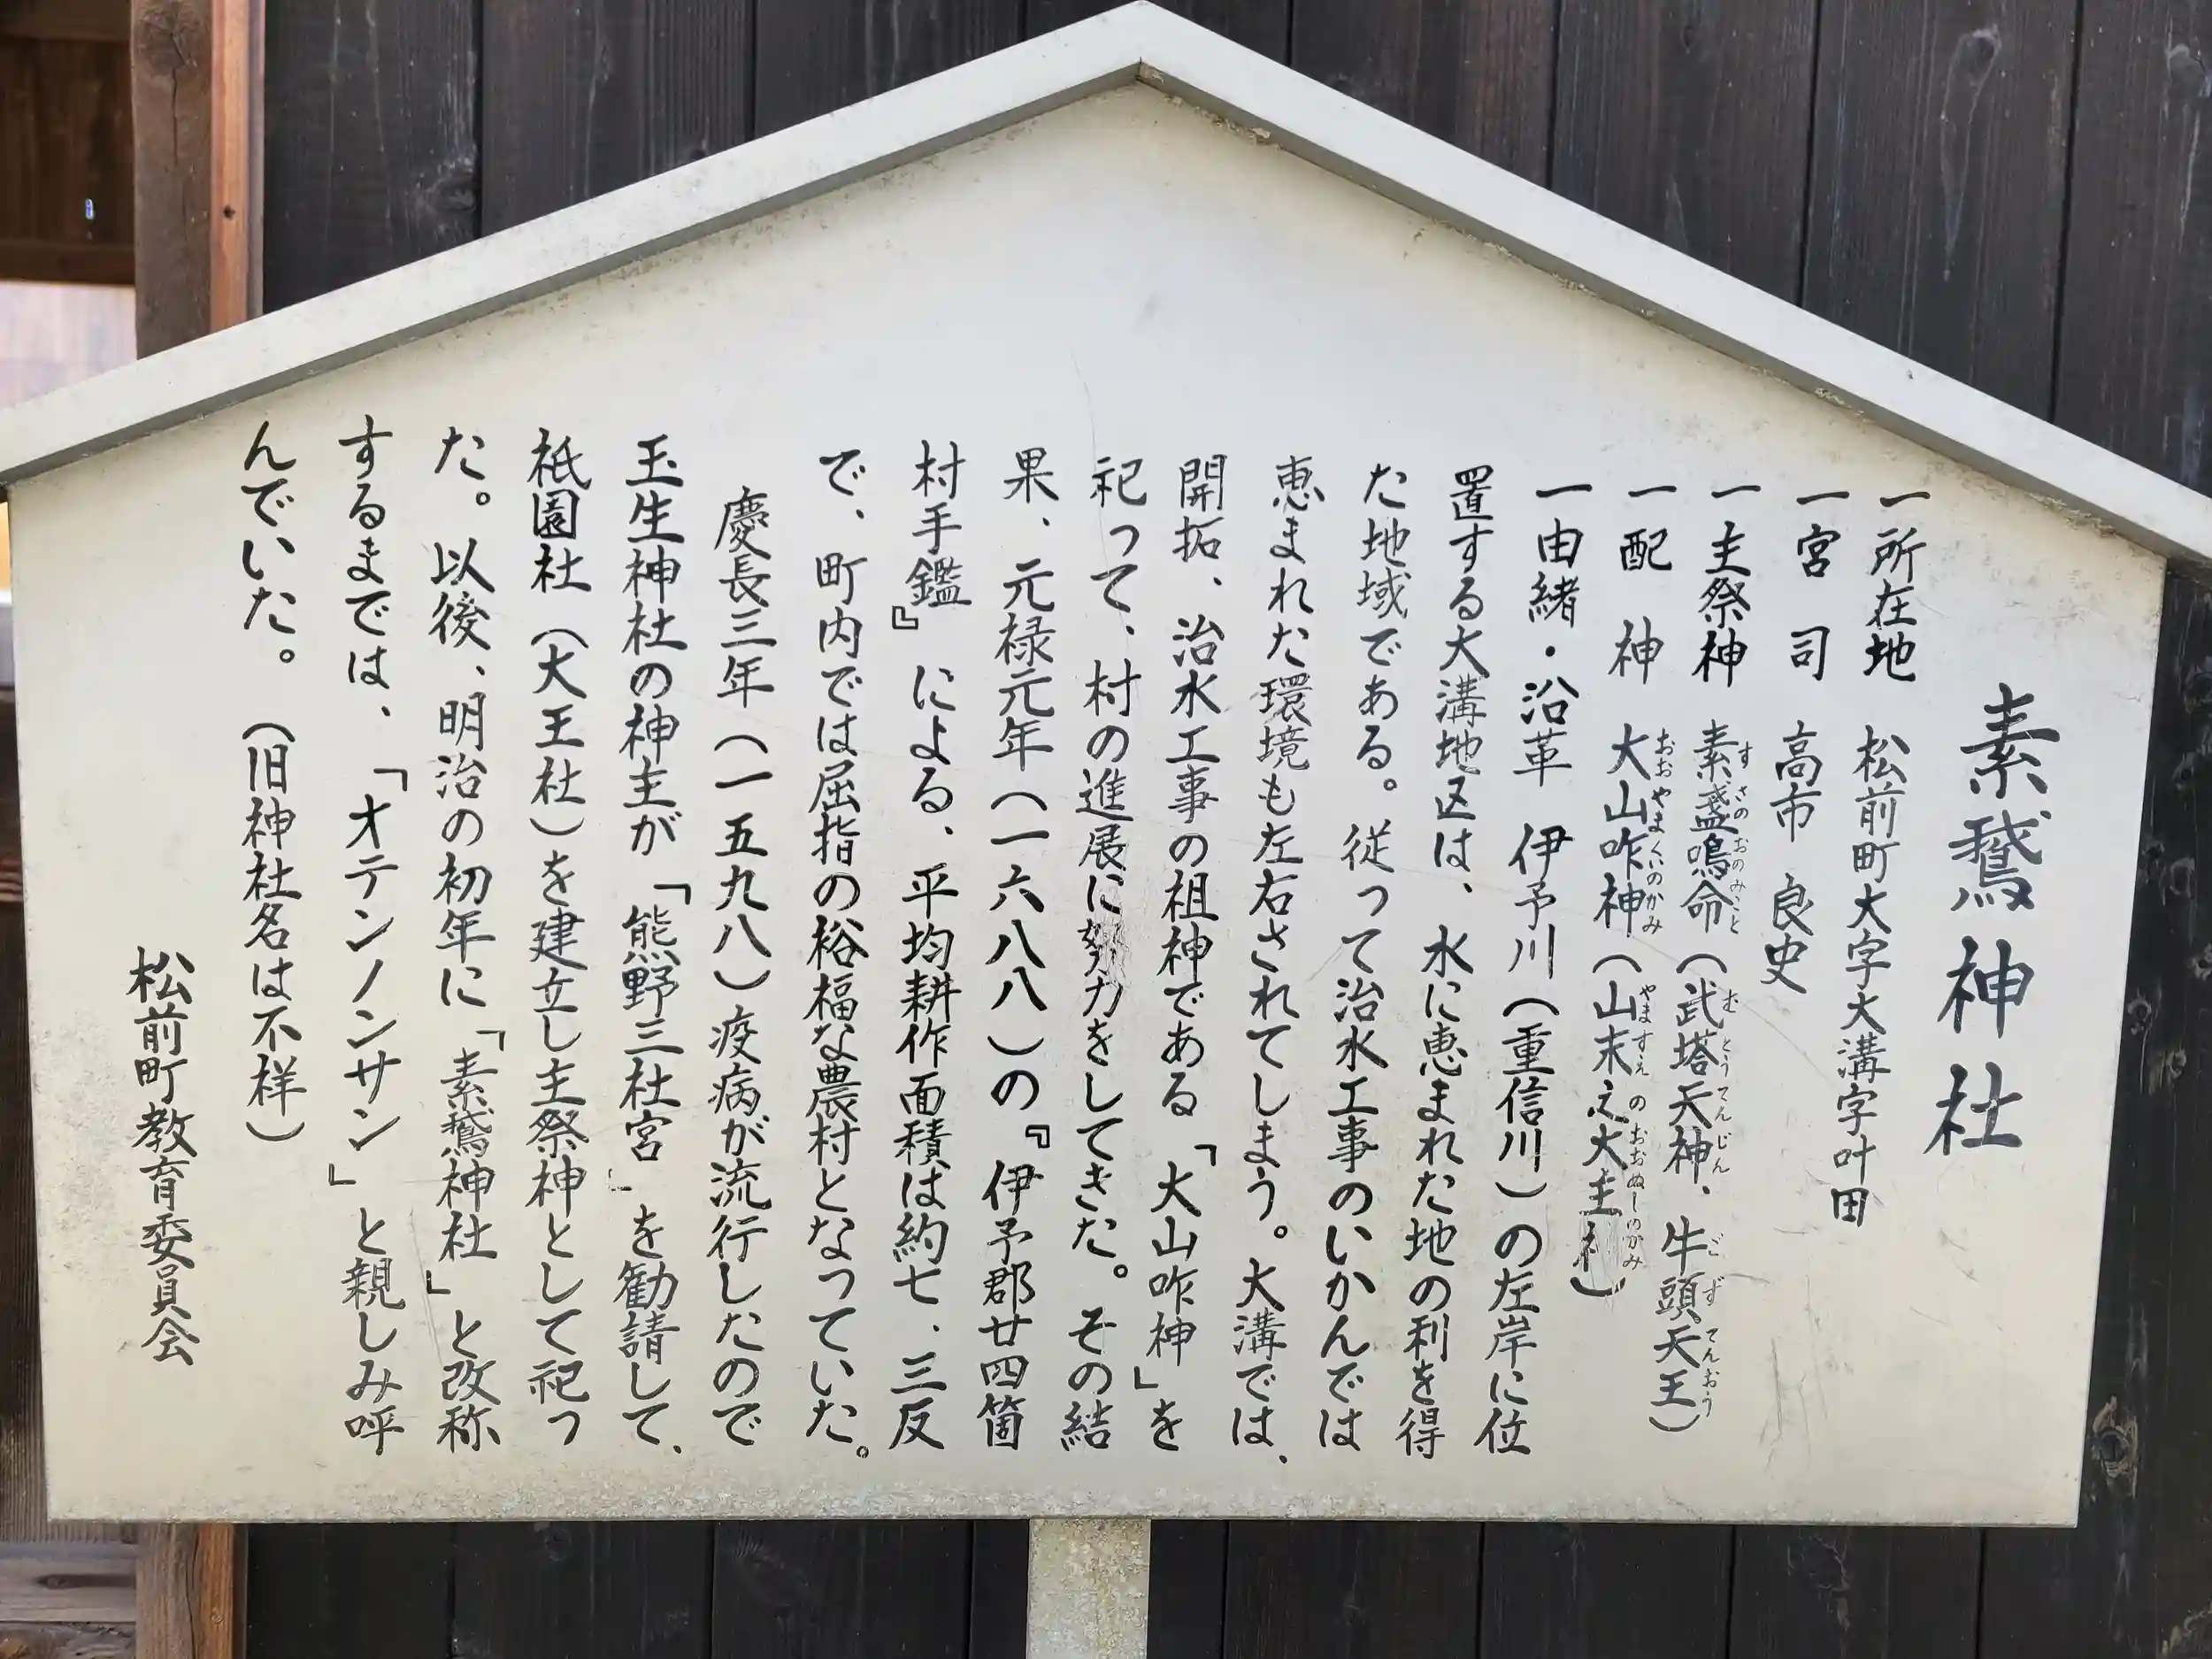 素鵞神社
一所在地 松前町大字大溝字叶田
一宮司 高市良史
一主祭神 素盞嗚命(武塔天神、牛頭天王)
すさのおのみこと むとうてんじん ごずてんおう
一配神 大山咋神(山末之大主神)
おおやまくいのかみ やますえのおおぬしのかみ
一由緒・沿革 伊予川(重信川)の左岸に位
置する大溝地区は、水に恵まれた地の利を得
た地域である。従って治水工事のいかんでは
恵まれた環境も左右されてしまう。大溝では、
開拓、治水工事の祖神である「大山咋神」を
祀って、村の進展に努力をしてきた。その結
果、元禄元年(一六八八)の『伊予郡廿四箇
村手鑑』による、平均耕作面積は約七、三反
で、町内では屈指の裕福な農村となっていた。
慶長三年(一五九八)疫病が流行したので
玉生神社の神主が「熊野三社宮」を勧請して、
祇園社(大王社)を建立し主祭神として祀っ
た。以後、明治の初年に「素鵞神社」と改称
するまでは、「オテンノンサン」と親しみ呼
んでいた。(旧神社名は不祥)
松前町教育委員会